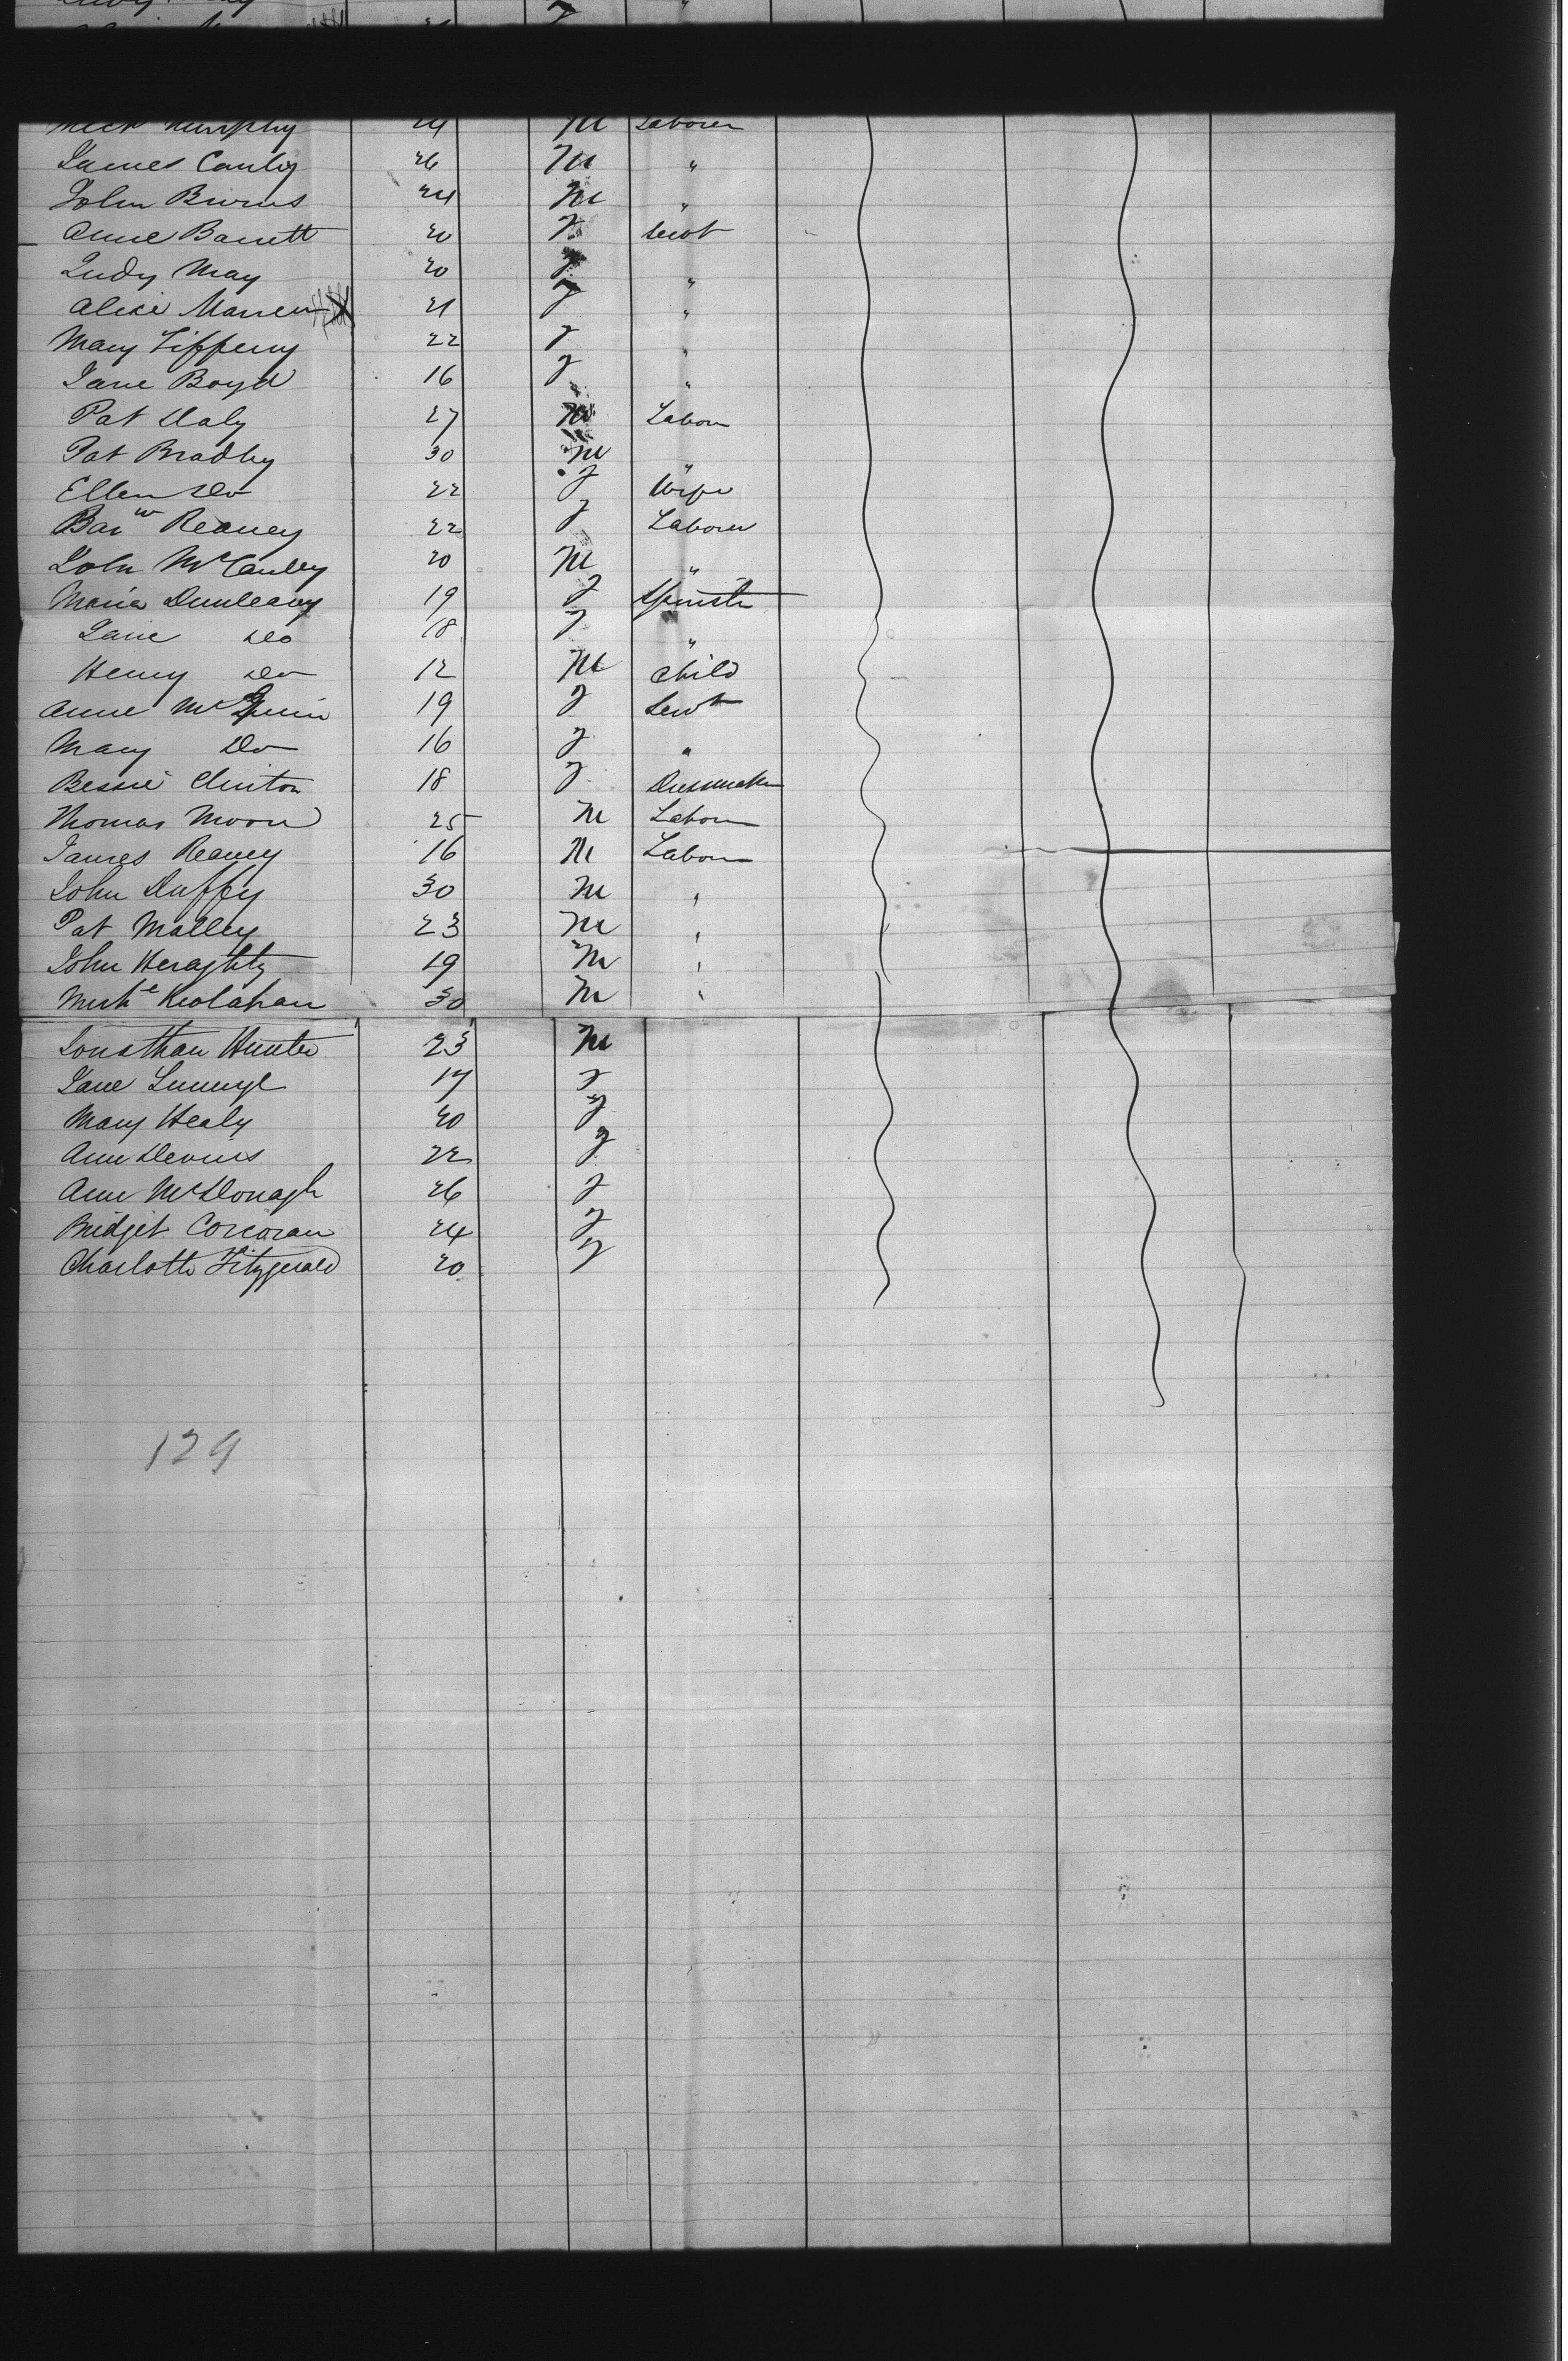 Mick Murphy 24 M Laborer
James Cauly 26 M "
John Burns 24 M "
Anne Barrett 20 F Servt
Judy May 20 F "
Alice Marren 21 F "
Mary Tifferny 22 F "
Jane Boyd 16 F "
Pat Daly 27 M Labour
Pat Bradley 30 M "
Ellen Do 22 F Wife
Bar w Reaney 22 F Laborer
John McCauley 20 M "
Maria Dunleavy 19 F Spinster
Jane Do 18 F "
Henry Do 12 M Child
Anne McQuin 19 F Servt
Mary Do 16 F "
Bessie Clinton 18 F Dressmaker
Thomas Moore 25 M Labour
James Reaney 16 M Labour
John Duffy 30 M "
Pat Malley 23 M "
John Heraghty 19 M "
30 M "
Jonathan Hunter 23 M
Jane 17 F
Mary Healy 20 F
Ann Devins 22 F
Ann McDonagh 26 F
Bridget Corcoran 24 F
Charlotte Fitzgerald 20 F
129